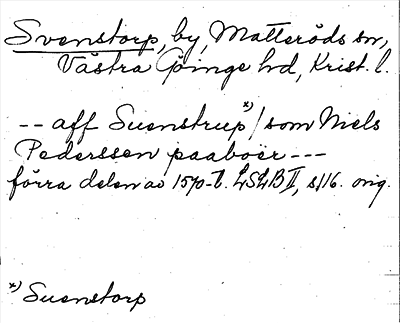 Svenstorp, by, Matteröds sn,
Västra Göinge hd, Krist. l.
-- aff Suenstrup*)/ som Niels
Pederssen paaboer ---
förra delen av 1570-t. LSLB II, s116. orig.
*) Suenstorp